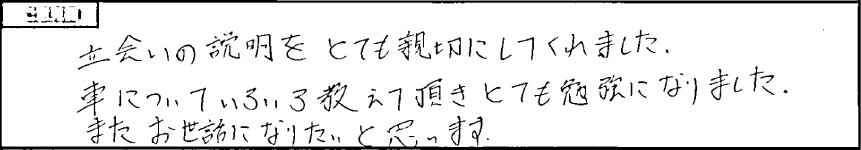 立会いの説明をとても親切にしてくれました.
車についていろいろ教えて頂きとても勉強になりました.
またお世話になりたいと思います.